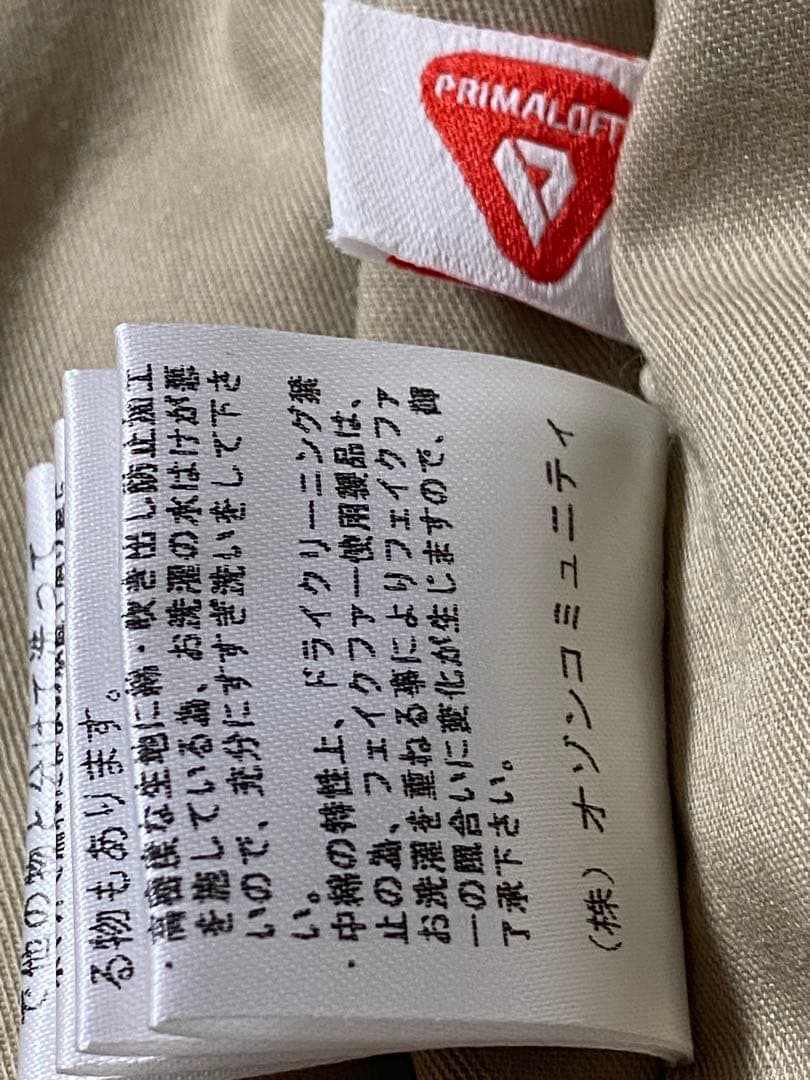 PRIMALOFT
・高密度な生地に綿・吹き出し防止加工
を施している為、お洗濯の水はけが悪
いので、充分にすすぎ洗いをして下さ
い。
・中綿の特性上、ドライクリーニング禁
止の為、フェイクファー使用製品は、
お洗濯を重ねる事によりフェイクファ
ーの風合いに変化が生じますので、御
了承下さい。
(株)オゾンコミュニティ
る物もあります。
で他の物と分けて洗って